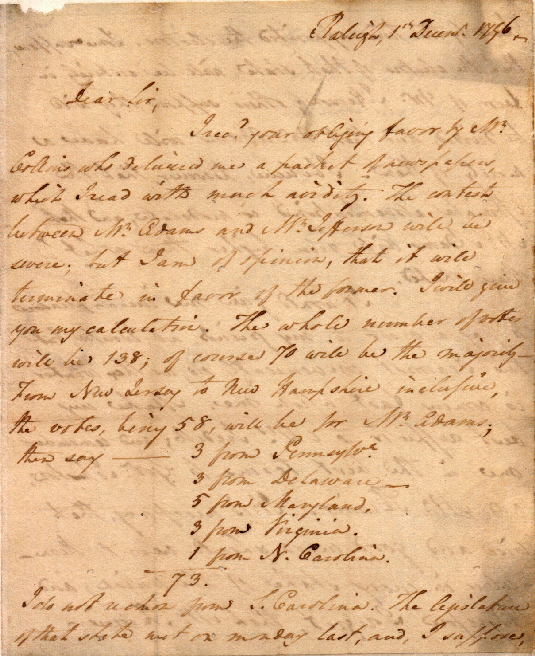 Raleigh, 1st Decemr. 1796.
Dear Sir,
I recd. your obliging favor by Mr.
Collins, who delivered me a packet of newspapers
which I read with much avidity. The contest
between Mr. Adams and Mr. Jefferson will be
severe; but I am of opinion, that it will
terminate in favor of the former. I will give
you my calculation. The whole number of votes
will be 138; of course 70 will be the majority—
From New Jersey to New Hampshire inclusive,
the votes, being 58, will be for Mr. Adams;
then say — 3 from Pennsylve.
3 from Delaware—
5 from Maryland.
3 from Virginia.
1 from N. Carolina.
73.
I do not reckon from S. Carolina. The legislature
of that state met on monday last, and, I suppose,